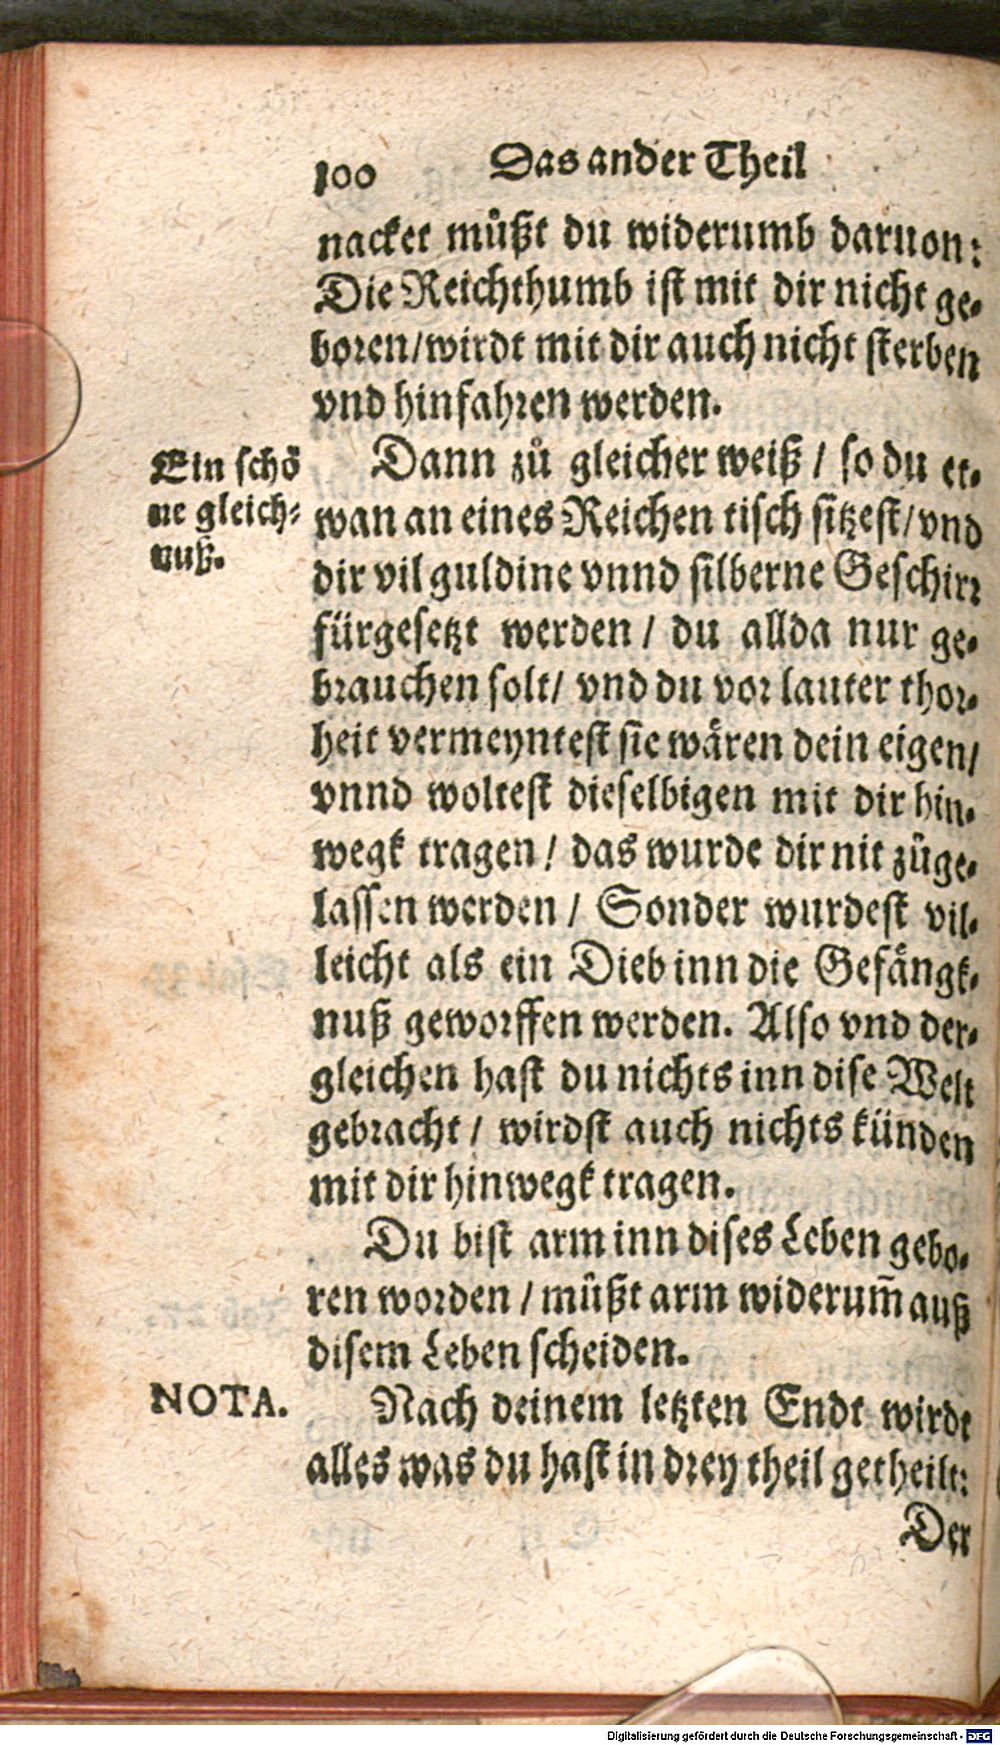 100 Das ander Theil
nacket müßt du widerumb daruon:
Die Reichthumb ist mit dir nicht ge-
boren/wirdt mit dir auch nicht sterben
vnd hinfahren werden.
Ein schö
ne gleich-
nuß.
Dann zů gleicher weiß / so du et-
wan an eines Reichen tisch sitzest/vnd
dir vil guldine vnnd silberne Geschirr
fürgesetzt werden / du allda nur ge-
brauchen solt/ vnd du vor lauter thor-
heit vermeyntest sie wären dein eigen/
vnnd woltest dieselbigen mit dir hin-
wegk tragen / das wurde dir nit zůge-
lassen werden / Sonder wurdest vil-
leicht als ein Dieb inn die Gefängk-
nuß geworffen werden. Also vnd der-
gleichen hast du nichts inn dise Welt
gebracht / wirdst auch nichts künden
mit dir hinwegk tragen.
Du bist arm inn dises Leben gebo-
ren worden / müßt arm widerum̄ auß
disem Leben scheiden.
NOTA.
Nach deinem letzten Endt wirdt
alles was du hast in drey theil getheilt:
Der
Digitalisierung gefördert durch die Deutsche Forschungsgemeinschaft - DFG